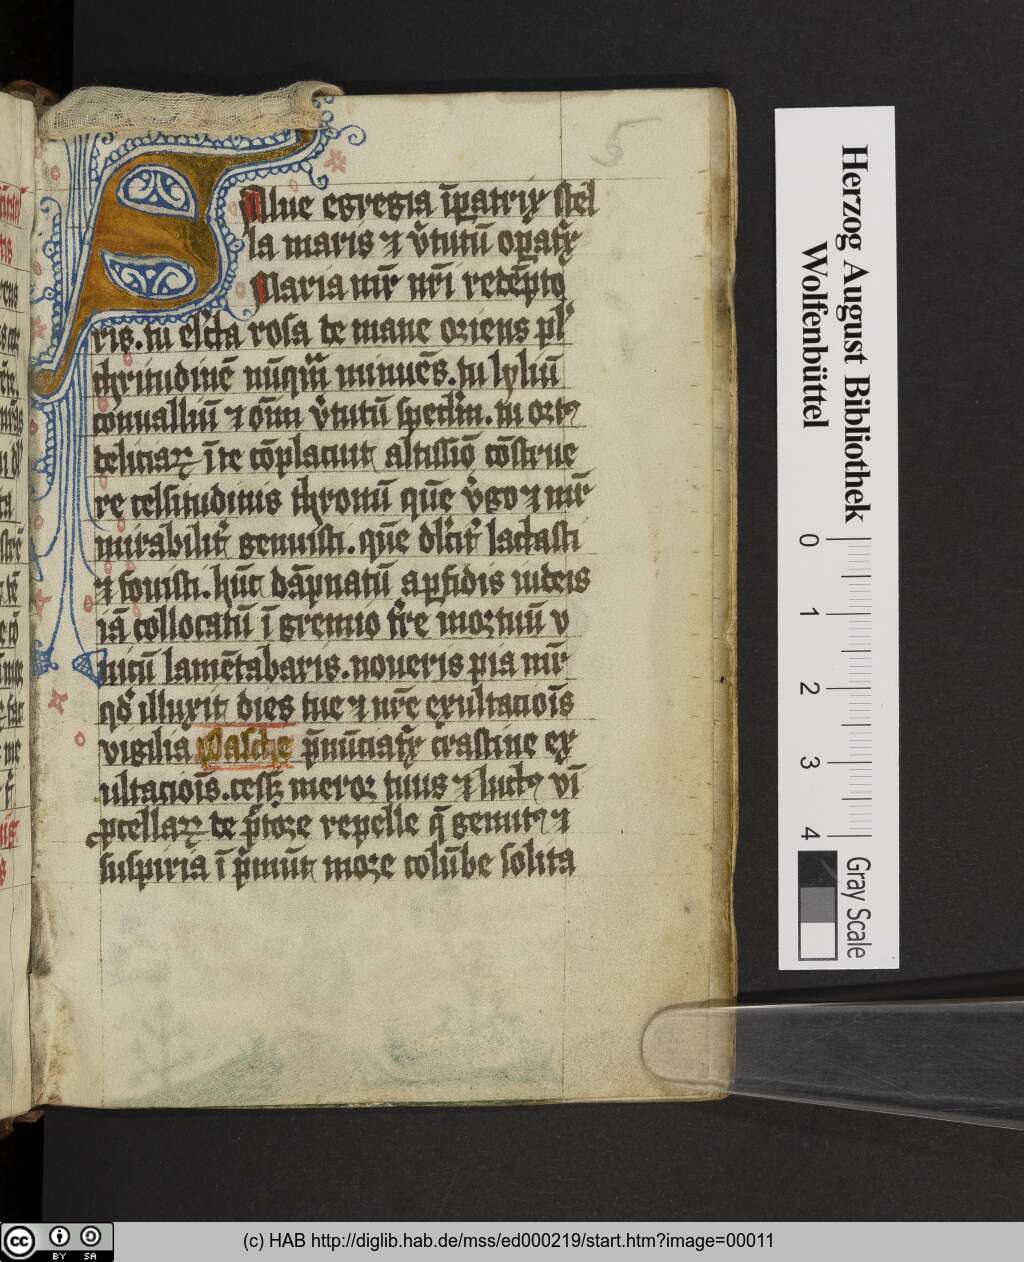 5
Salue egregia īp̄atrix stel
la maris ⁊ v̓tutū op̄atͥx
Maria mr̄ nr̄i redēpto
ris. tu esc̄ta rosa de mane oriens pl̓
chritudinē nūq̄m minuēs. tu lyliū
conualliū ⁊ oīm v̓tutū specl̄m. tu ortꝯ
deliciaꝝ ī te cōplacuit altissīo cōstrue
re celsitudinis thronū quē v̓go ⁊ mr̄
mirabilit̓ genuisti. quē dl̓cit̓ lactasti
⁊ fouisti. hūc dāpnatū a ꝑfidis iudeis
iā collocatū ī gremio fr̄e mortuū v
nicū lamētabaris. noueris pia mr̄
qd̓ illuxit dies tue ⁊ nr̄e exultaciōis
vigilia Pasche p̄nūciatͥx crastine ex
ultaciōis. cess; meror tuus ⁊ luctꝯ vī
ꝓcellaꝝ de p̄tore repelle q̄ genitꝯ ⁊
suspiria ī p̄mūt more colūbe solita
Herzog August Bibliothek
Wolfenbüttel
0 1 2 3 4
Gray Scale
cc BY SA
(c) HAB http://diglib.hab.de/mss/ed000219/start.htm?image=00011